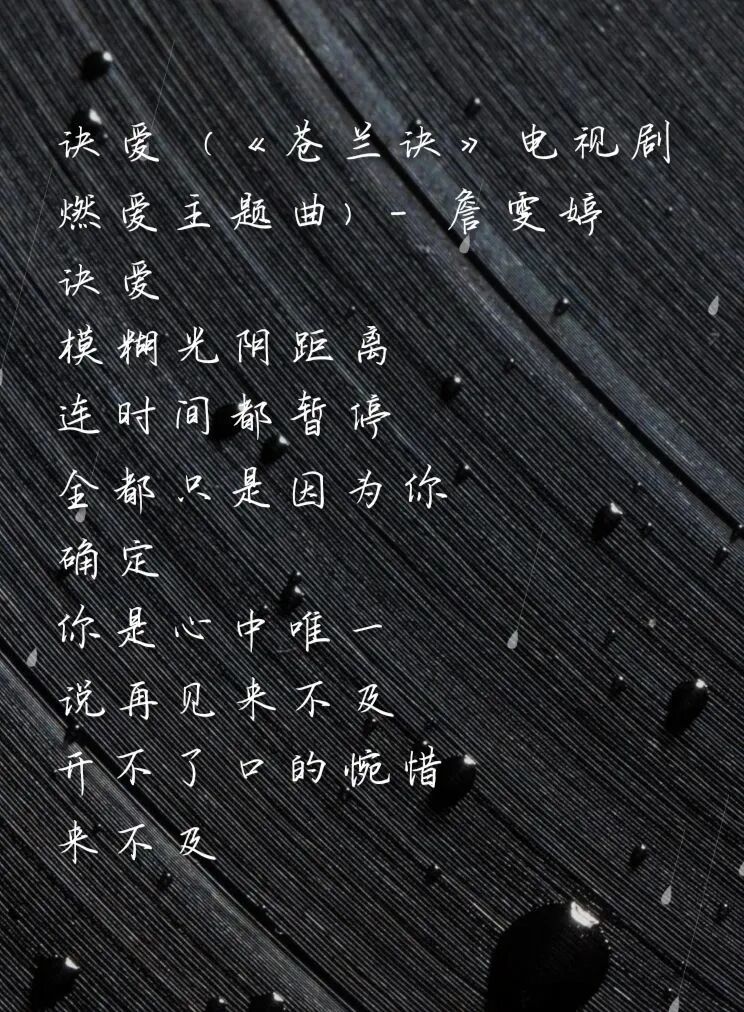 诀爱（《苍兰诀》电视剧
燃爱主题曲）- 詹雯婷
诀爱
模糊光阴距离
连时间都暂停
全都只是因为你
确定
你是心中唯一
说再见来不及
开不了口的惋惜
来不及